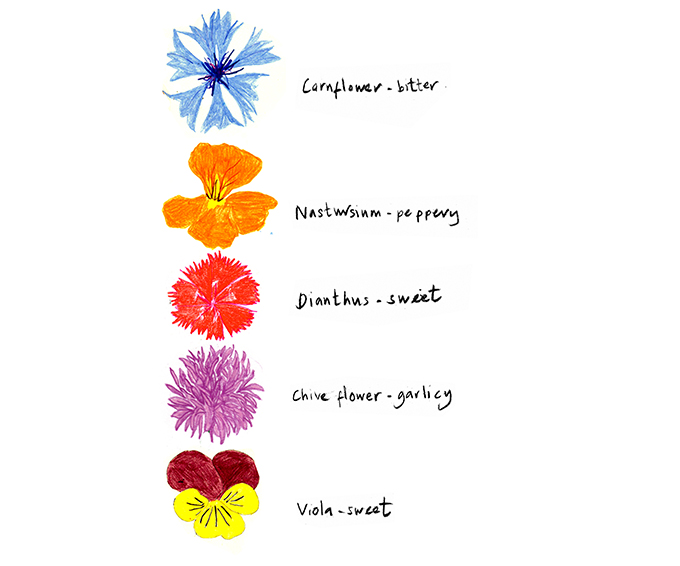 Carnflower - bitter
Nastursium - peppery
Dianthus - sweet
Chive flower - garlicy
Viola - sweet